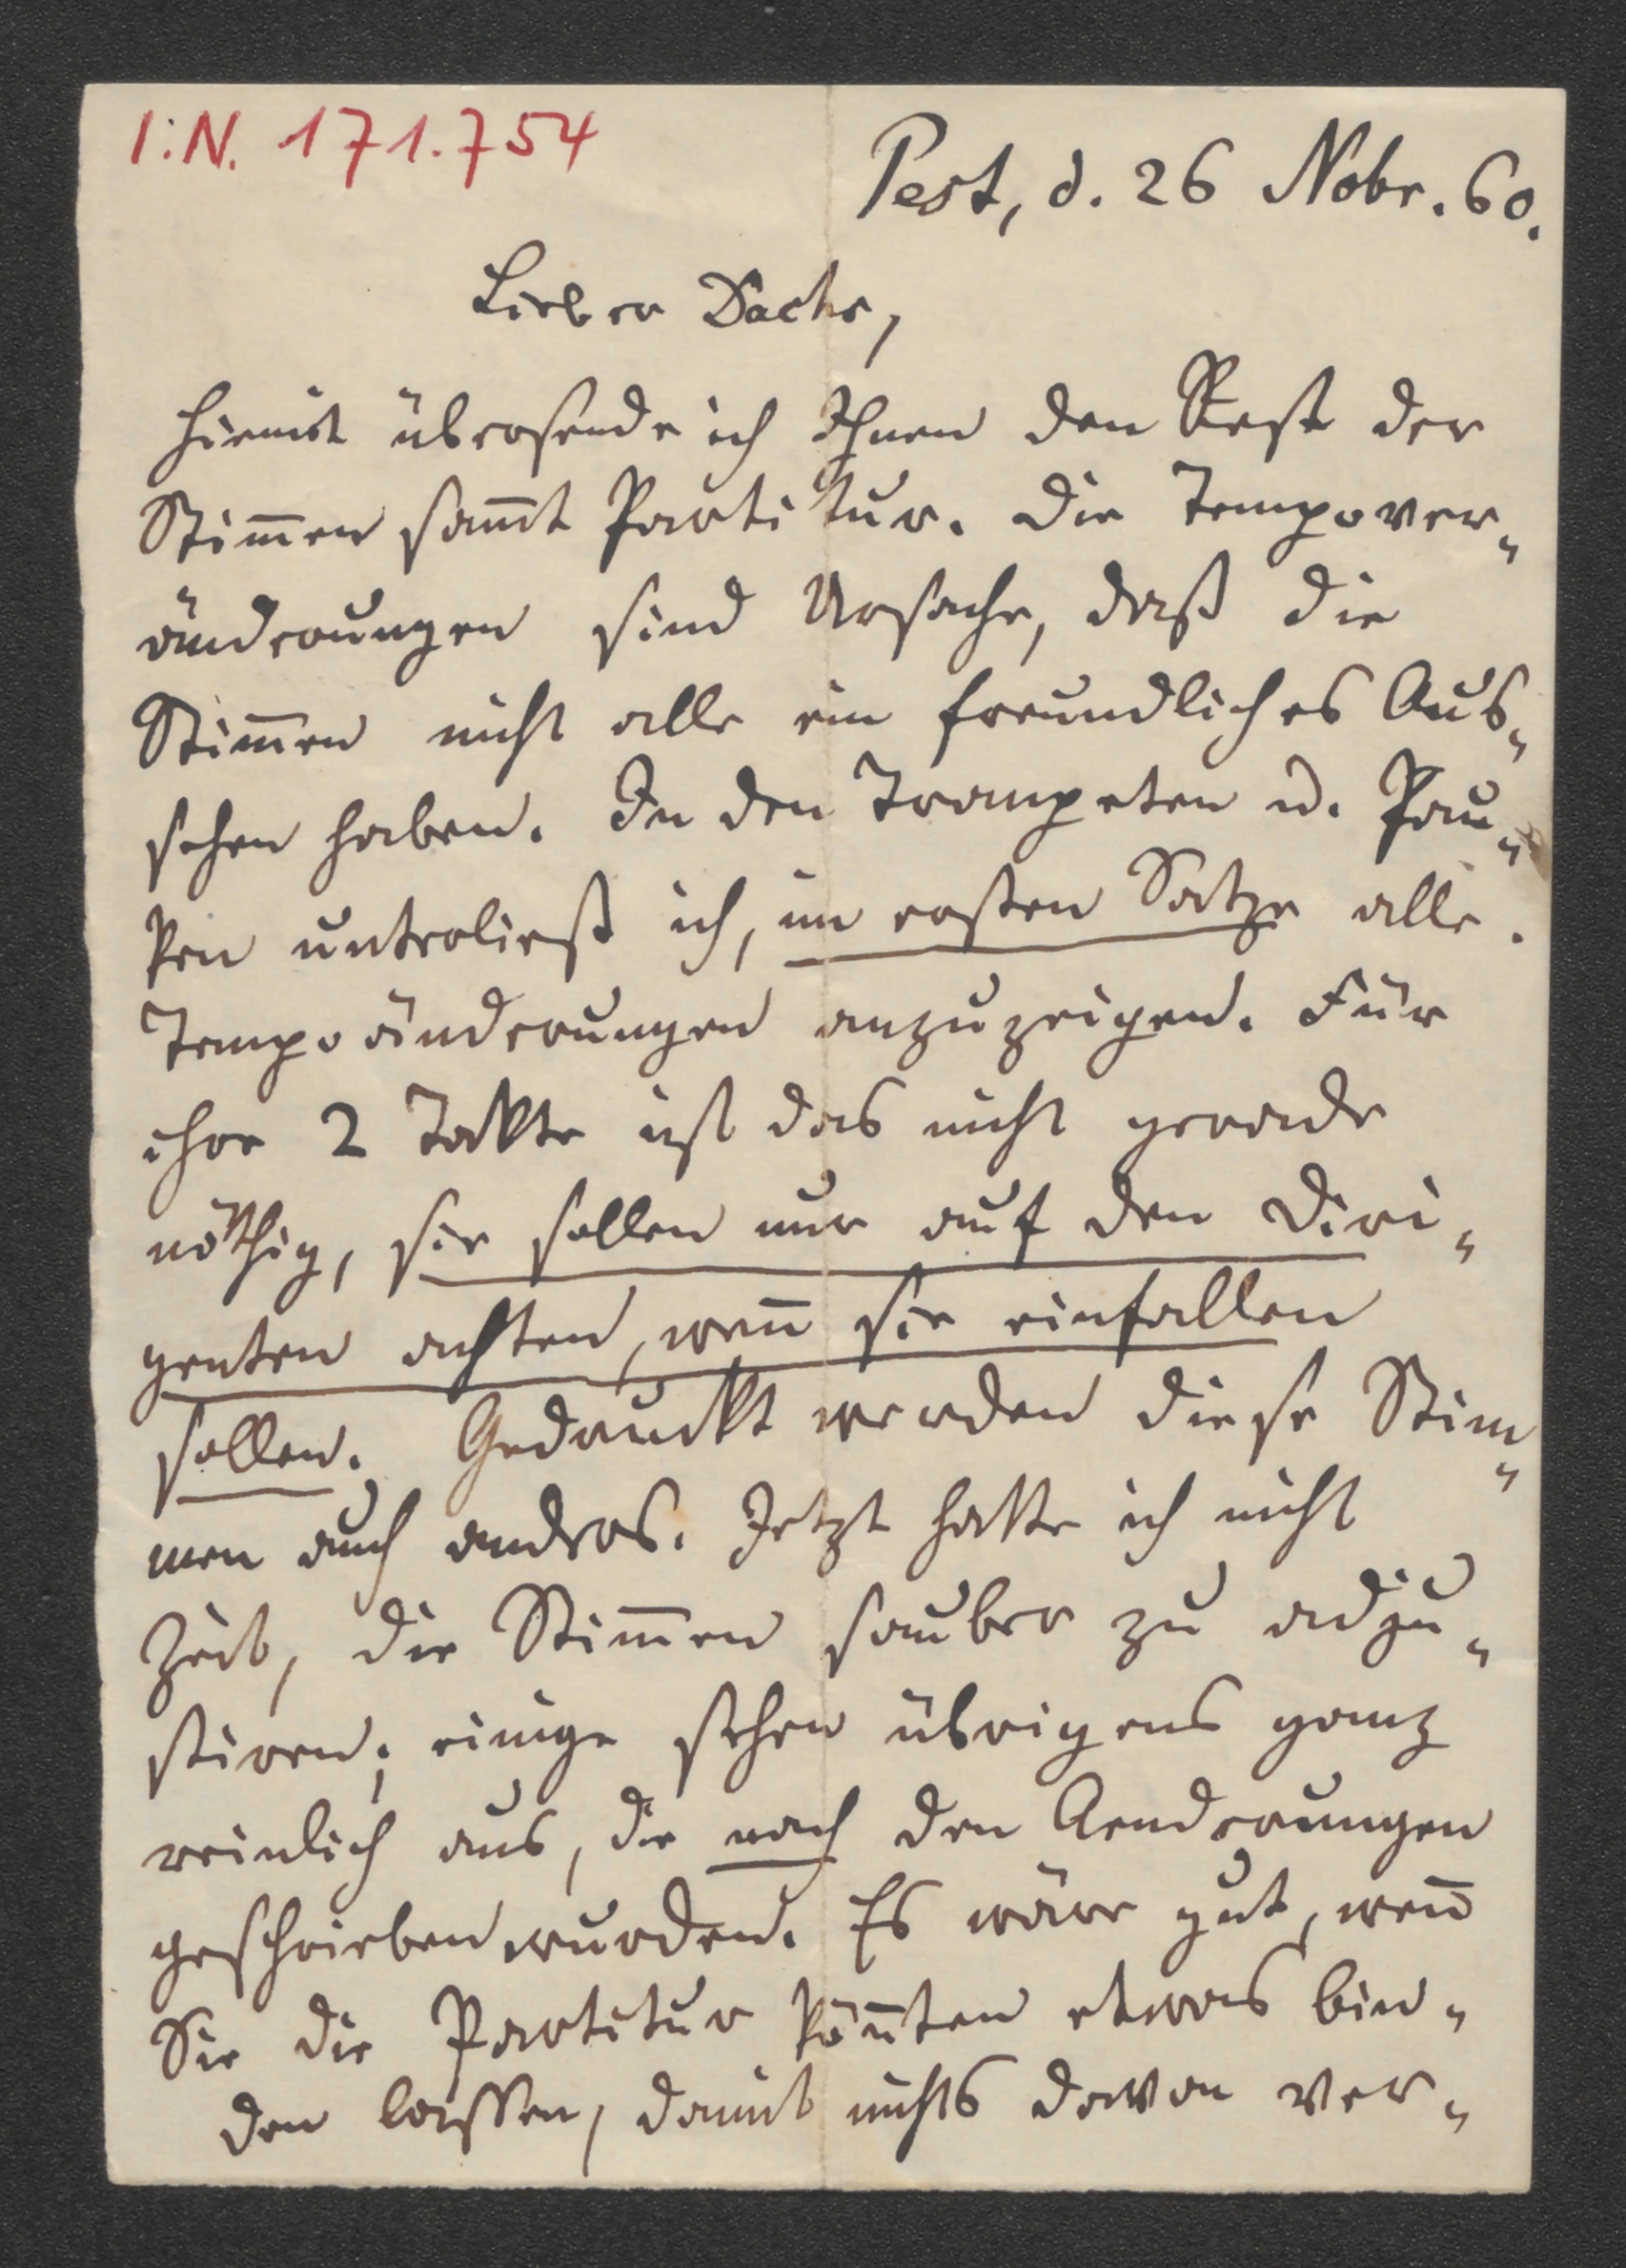 I:N. 171.754
Pest, d. 26 Nobr. 60.
Lieber Dachs,
hiemit übersende ich Ihnen den Rest der
Stim̅en sam̅t Partitur. Die Tempover„
änderungen sind Ursache, daß die
Stim̅en nicht alle ein freundliches Aus„
sehen haben. In den Trompeten u. Pau„
ken unterließ ich, im ersten Satze alle
Tempoänderungen anzuzeigen. Für
ihre 2 Takte ist das nicht gerade
nöthig, sie sollen nur auf den Diri„
genten achten, wen̅ sie einfallen
sollen. Gedruckt werden diese Stim„
men auch anders. Jetzt hatte ich nicht
Zeit, die Stim̅en sauber zu adju„
stiren; einige sehen übrigens ganz
reinlich aus, die nach den Aenderungen
geschrieben wurden. Es wäre gut, wen̅
Sie die Partitur kön̅ten etwas bin„
den lassen, damit nichts davon ver„